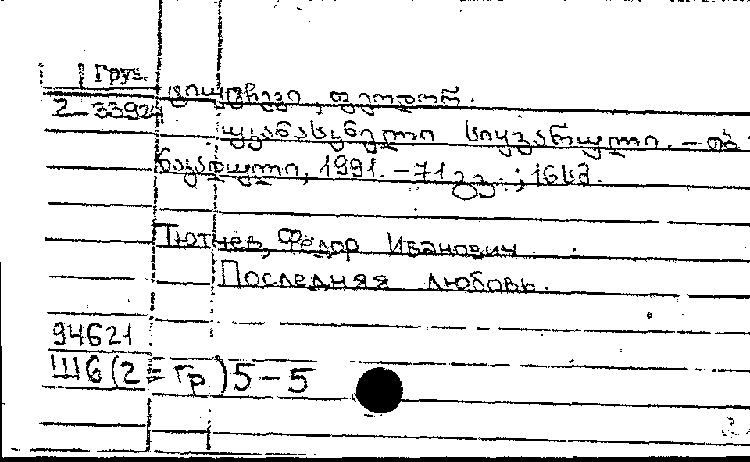 Груз.
2-3392
ტიუტჩევი, ფეოდორ.
უკანასკნელი სიყვარული. – თბ
ნაკადული, 1991. – 71 გვ.; 16 სმ.
Тютчев, Фёдор Иванович
Последняя любовь.
94621
Ш6(2=Гр)5-5